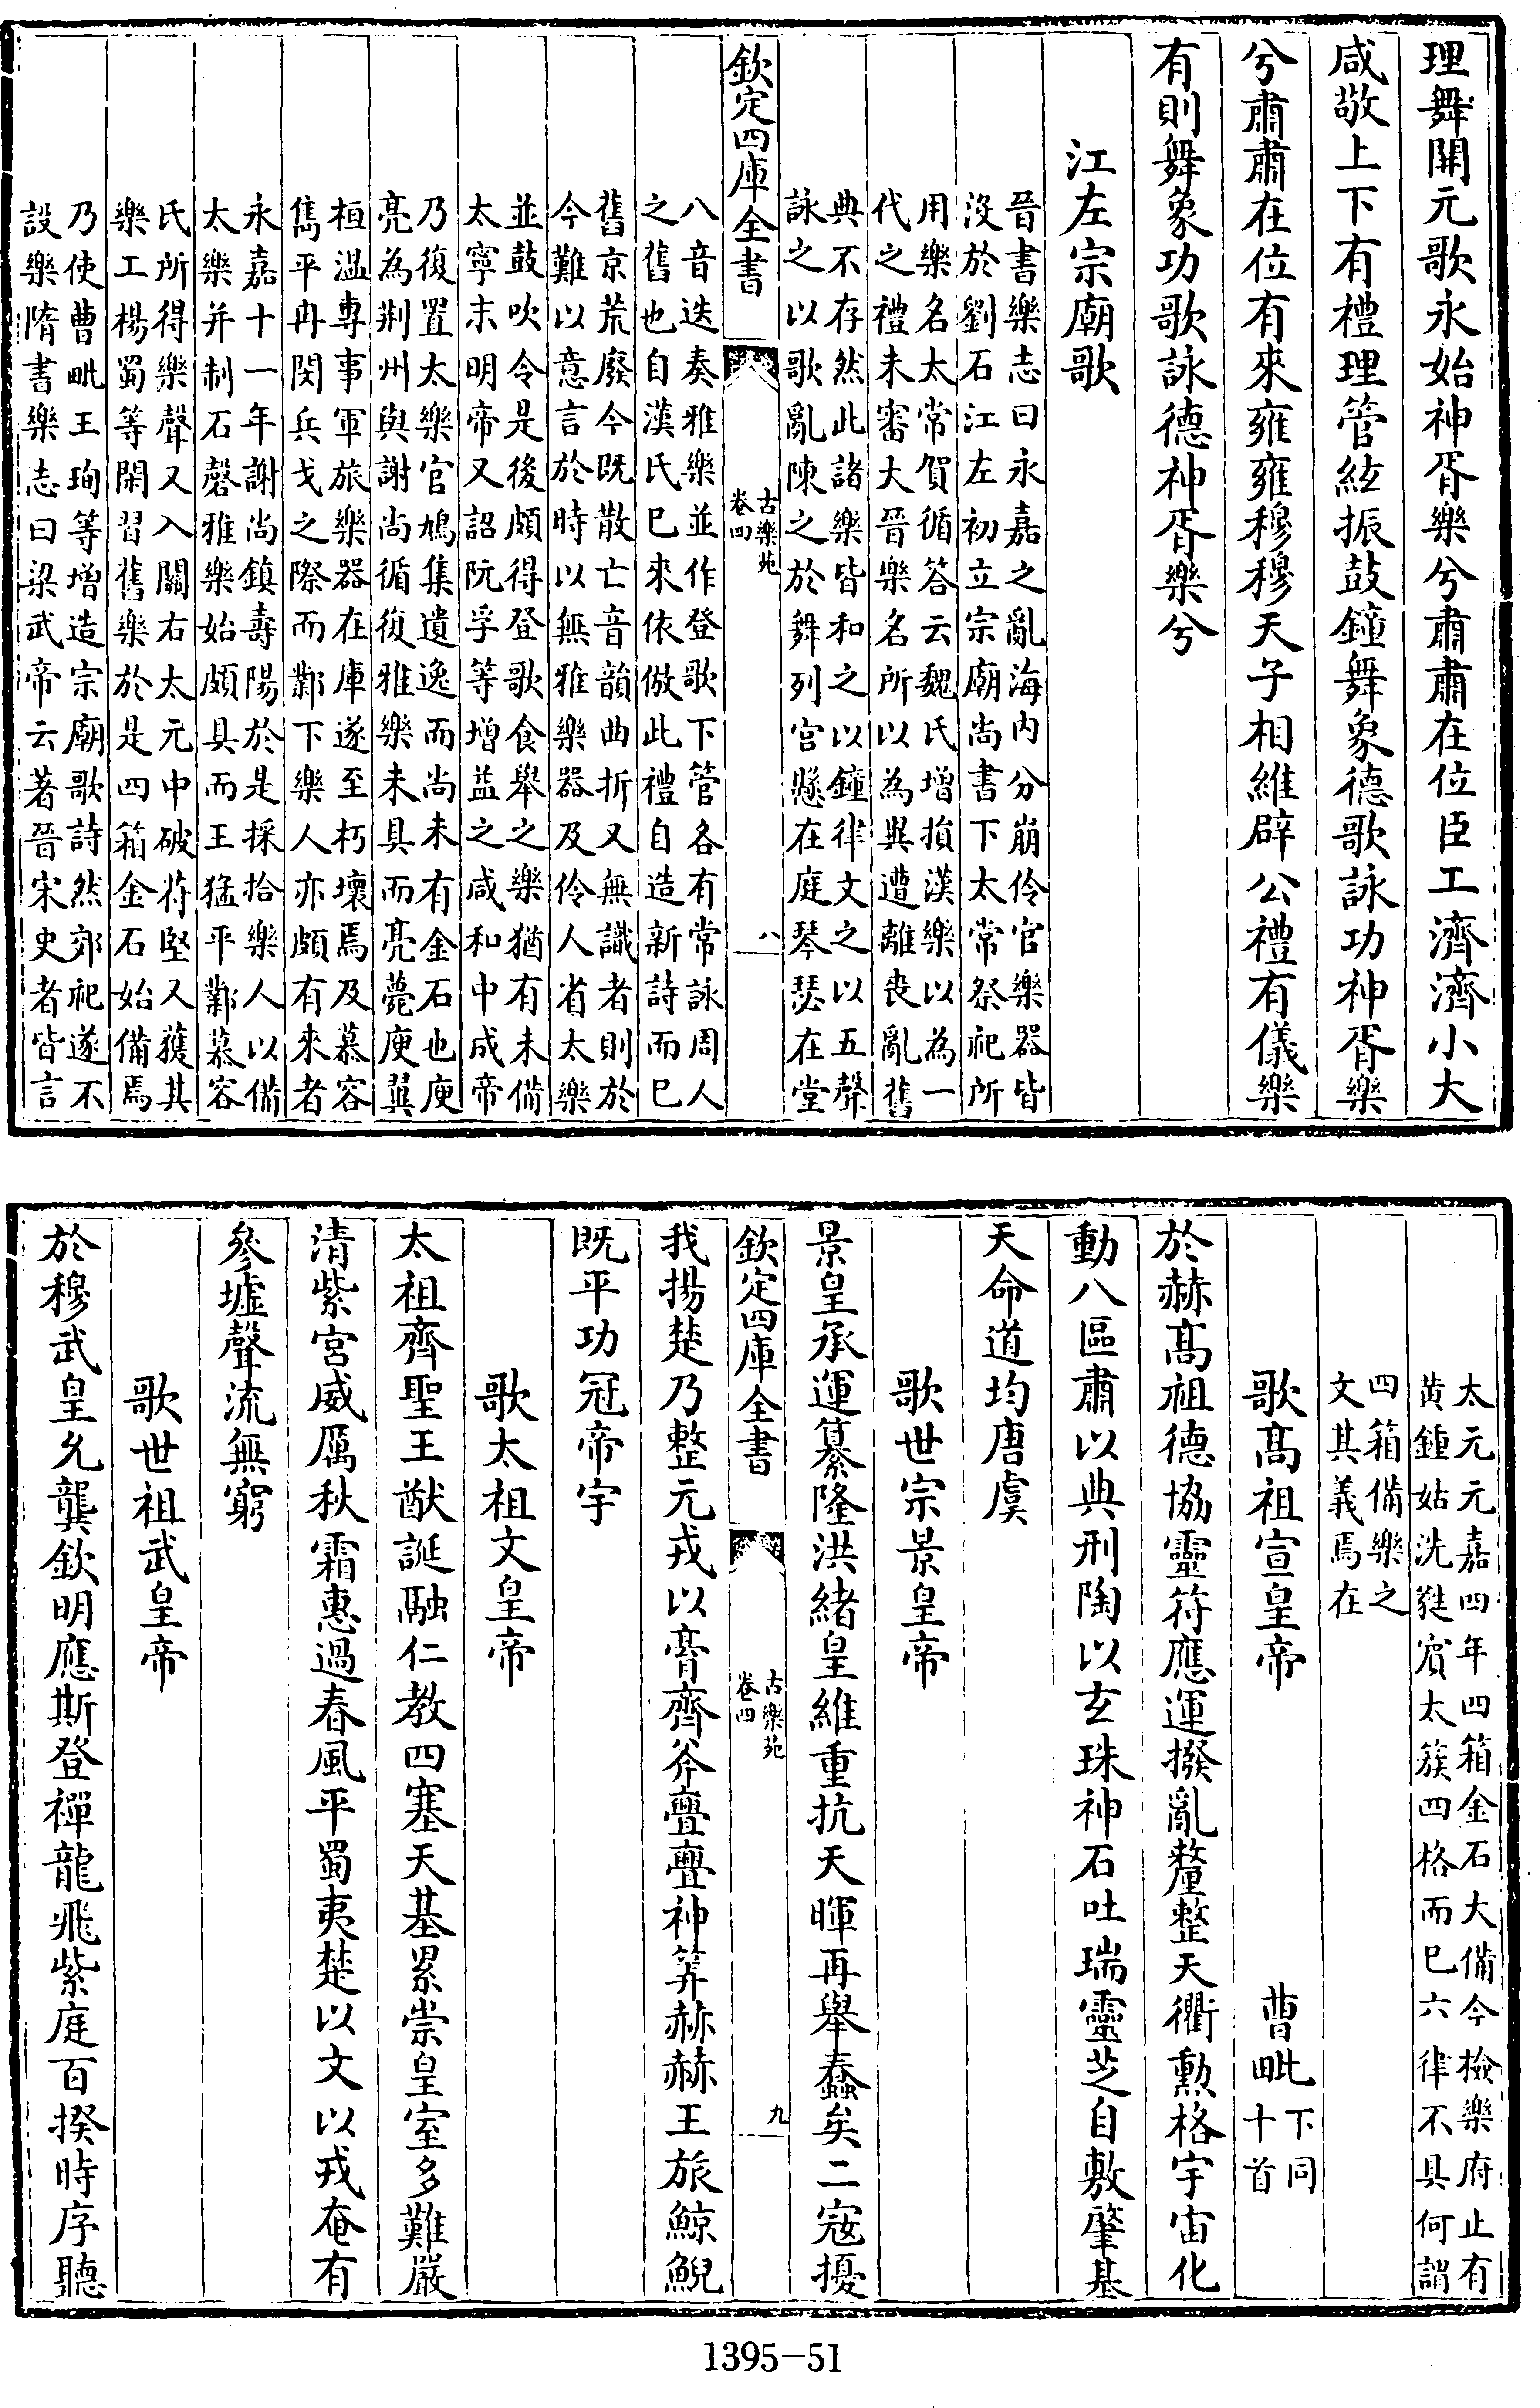 理舞開元歌永始神胥樂兮肅肅在位臣工濟濟小大
咸敬上下有禮理管絃振鼓鐘舞象德歌詠功神胥樂
兮肅肅在位有來雍雍穆穆天子相維辟公禮有儀樂
有則舞象功歌詠德神胥樂兮
江左宗廟歌
晉書樂志曰永嘉之亂海内分崩伶官樂器皆
沒於劉石江左初立宗廟尚書下太常祭祀所
用樂名太常賀循答云魏氏增損漢樂以為一
代之禮未審大晉樂名所以為異遭離喪亂舊
典不存然此諸樂皆和之以鐘律文之以五聲
詠之以歌亂陳之於舞列宮懸在庭琴瑟在堂
欽定四庫全書
古樂苑
卷四
八
八音迭奏雅樂並作登歌下管各有常詠周人
之舊也自漢氏已來依倣此禮自造新詩而已
舊京荒廢今既散亡音韻曲折又無識者則於
今難以意言於時以無雅樂器及伶人省太樂
並鼓吹令是後頗得登歌食舉之樂猶有未備
太寧末明帝又詔阮孚等增益之咸和中成帝
乃復置太樂官鳩集遺逸而尚未有金石也庾
亮為荆州與謝尚循復雅樂未具而亮薨庾翼
桓溫專事軍旅樂器在庫遂至朽壞焉及慕容
雋平冉閔兵戈之際而鄴下樂人亦頗有來者
永嘉十一年謝尚鎮壽陽於是採拾樂人以備
太樂并制石磬雅樂始頗具而王猛平鄴慕容
氏所得樂聲又入關右太元中破苻堅又獲其
樂工楊蜀等閑習舊樂於是四箱金石始備焉
乃使曹毗王珣等增造宗廟歌詩然郊祀遂不
設樂隋書樂志曰梁武帝云著晉宋史者皆言
太元元嘉四年四箱金石大備今檢樂府止有
黄鍾姑洗蕤賓太簇四格而已六律不具何謂
四箱備樂之
文其義焉在
歌髙祖宣皇帝 曹毗下同十首
於赫髙祖德協靈符應運撥亂釐整天衢勲格宇宙化
動八區肅以典刑陶以玄珠神石吐瑞靈芝自敷肇基
天命道均唐虞
歌世宗景皇帝
景皇承運纂隆洪緒皇維重抗天暉再舉蠢矣二寇擾
欽定四庫全書
古樂苑
卷四
九
我揚楚乃整元戎以膏齊斧亹亹神筭赫赫王旅鯨鯢
既平功冠帝宇
歌太祖文皇帝
太祖齊聖王猷誕融仁教四塞天基累崇皇室多難嚴
清紫宮威厲秋霜惠過春風平蜀夷楚以文以戎奄有
參墟聲流無窮
歌世祖武皇帝
於穆武皇允龔欽明應斯登禪龍飛紫庭百揆時序聽
1395-51